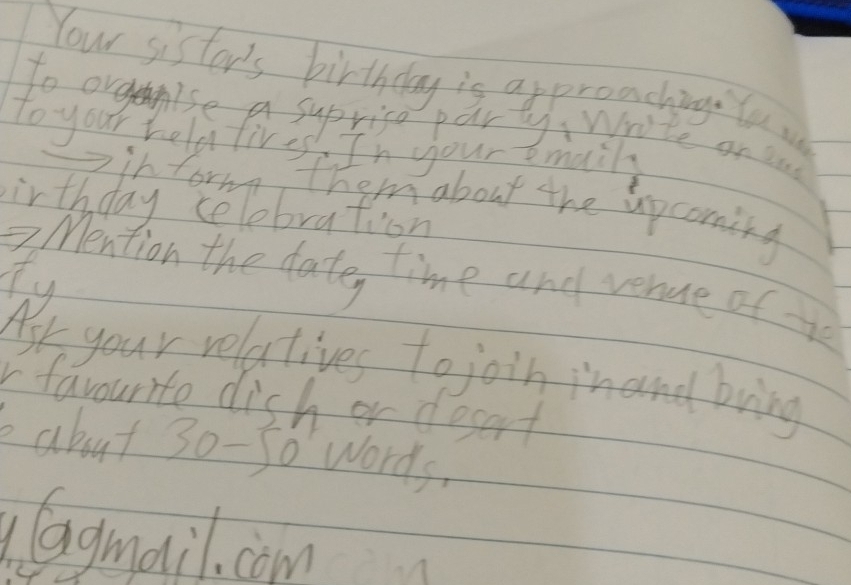 Your sister's birthday is approaching. You
to organise a suprise party. Write an
to your relatives. In your email;
→ inform them about the upcoming
irthday celebration
⇒ Mention the date, time and venue of the
ty
Ask your relatives to join in and bring
r favourite dish or desert
e about 30-50 words.
y@gmail.com